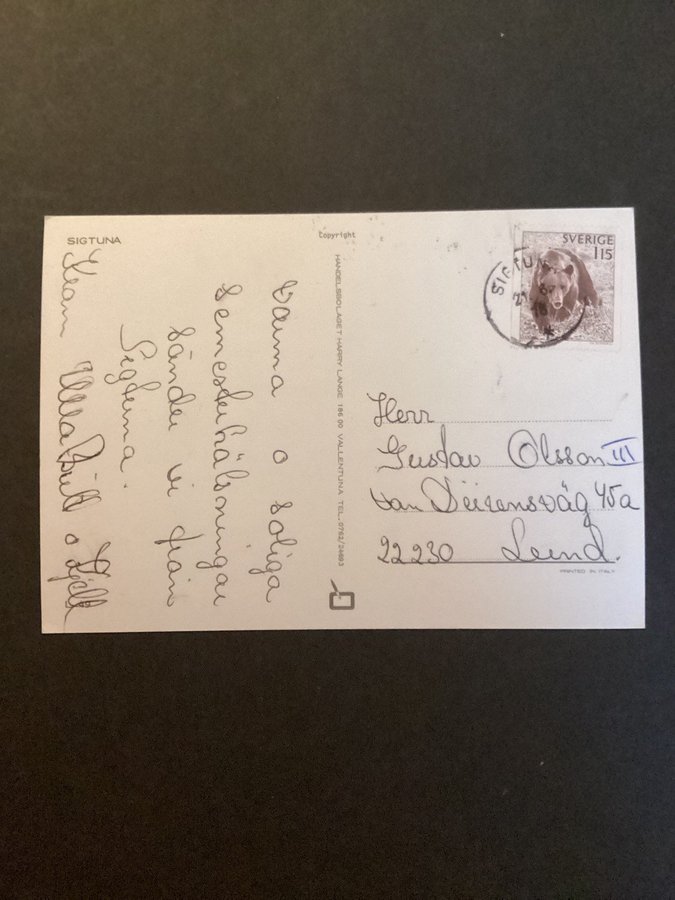 SIGTUNA
Copyright
Varma o soliga
semesterhälsningar
sänder vi från
Sigtuna.
Kram Ulla Britt o Kjell
HANDELSBOLAGET HARRY LANGE 186 00 VALLENTUNA TEL. 0762/24693
SVERIGE
115
SIGTUNA
Herr
Gustav Olsson III
van Deürensväg 45a
22230 Lund.
PRINTED IN ITALY